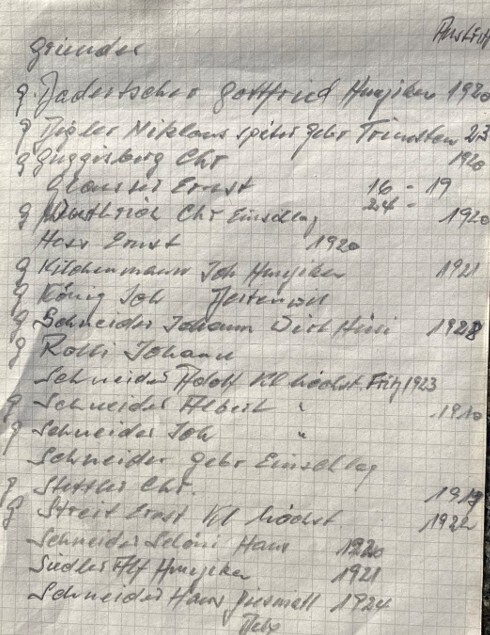 Austritt
gründer
g. Badertscher Gottfried Hunziken 1920
g Niklaus später gebr Trimstein 23
g Guggisberg Chr 1920
Glauser Ernst 16 - 19
24 -
g Chr Einschlag 1920
Hoss Ernst 1920
g Kilchenmann Joh Hunziken 1921
g König Joh
g Schneider Johann Wirt Hini 1928
g Rolli Johann
Schneider Adolf Kl höchst. Fritz 1923
g Schneider Albert " 1920
g Schneider Joh "
Schneider gebr Einschlag
g Stettler Chr. 1919
g Streit Ernst Kl höchst. 1922
Schneider Schöni Hans 1920
Siedler Alf Hunziken 1921
Schneider Hans 1924